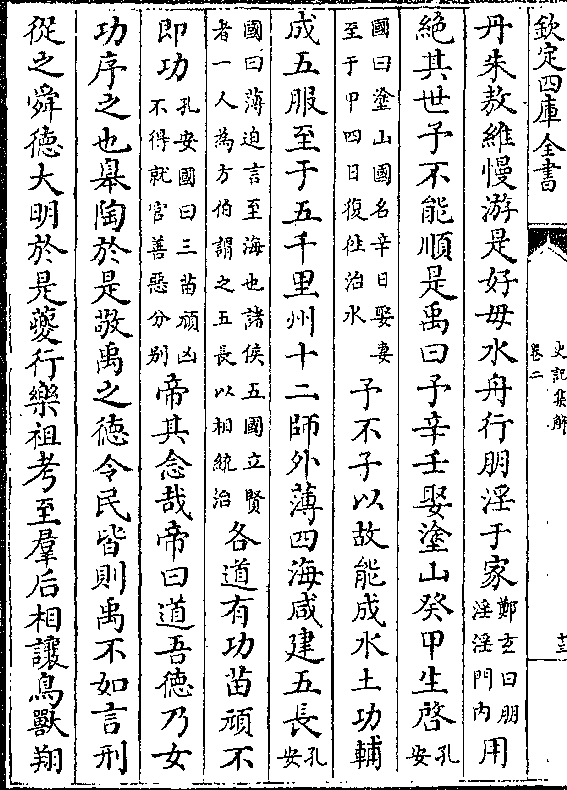 欽定四庫全書
史記集解
卷二
十三
丹朱敖維慢游是好毋水舟行朋淫于家鄭玄曰朋淫淫門内用
絕其世予不能順是禹曰予辛壬娶塗山癸甲生啓孔安
國曰塗山國名辛日娶妻至于甲四日復徃治水予不子以故能成水土功輔
成五服至于五千里州十二師外薄四海咸建五長孔安
國曰薄迫言至海也諸侯五國立賢者一人為方伯謂之五長以相統治各道有功苗頑不
即功孔安國曰三苗頑凶不得就官善惡分别帝其念哉帝曰道吾德乃女
功序之也臯陶於是敬禹之德令民皆則禹不如言刑
從之舜德大明於是夔行樂祖考至羣后相讓鳥獸翔